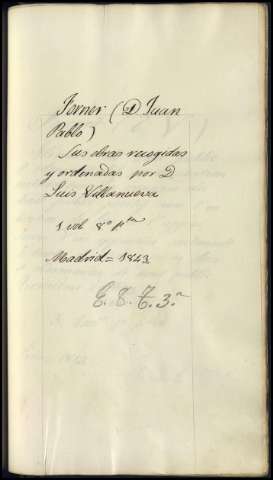 Forner (D Juan
Pablo)
Sus obras recogidas
y ordenadas por D
Luis Villanueva
1 vol 8º pta
Madrid = 1843
E. 8. T. 3.ª